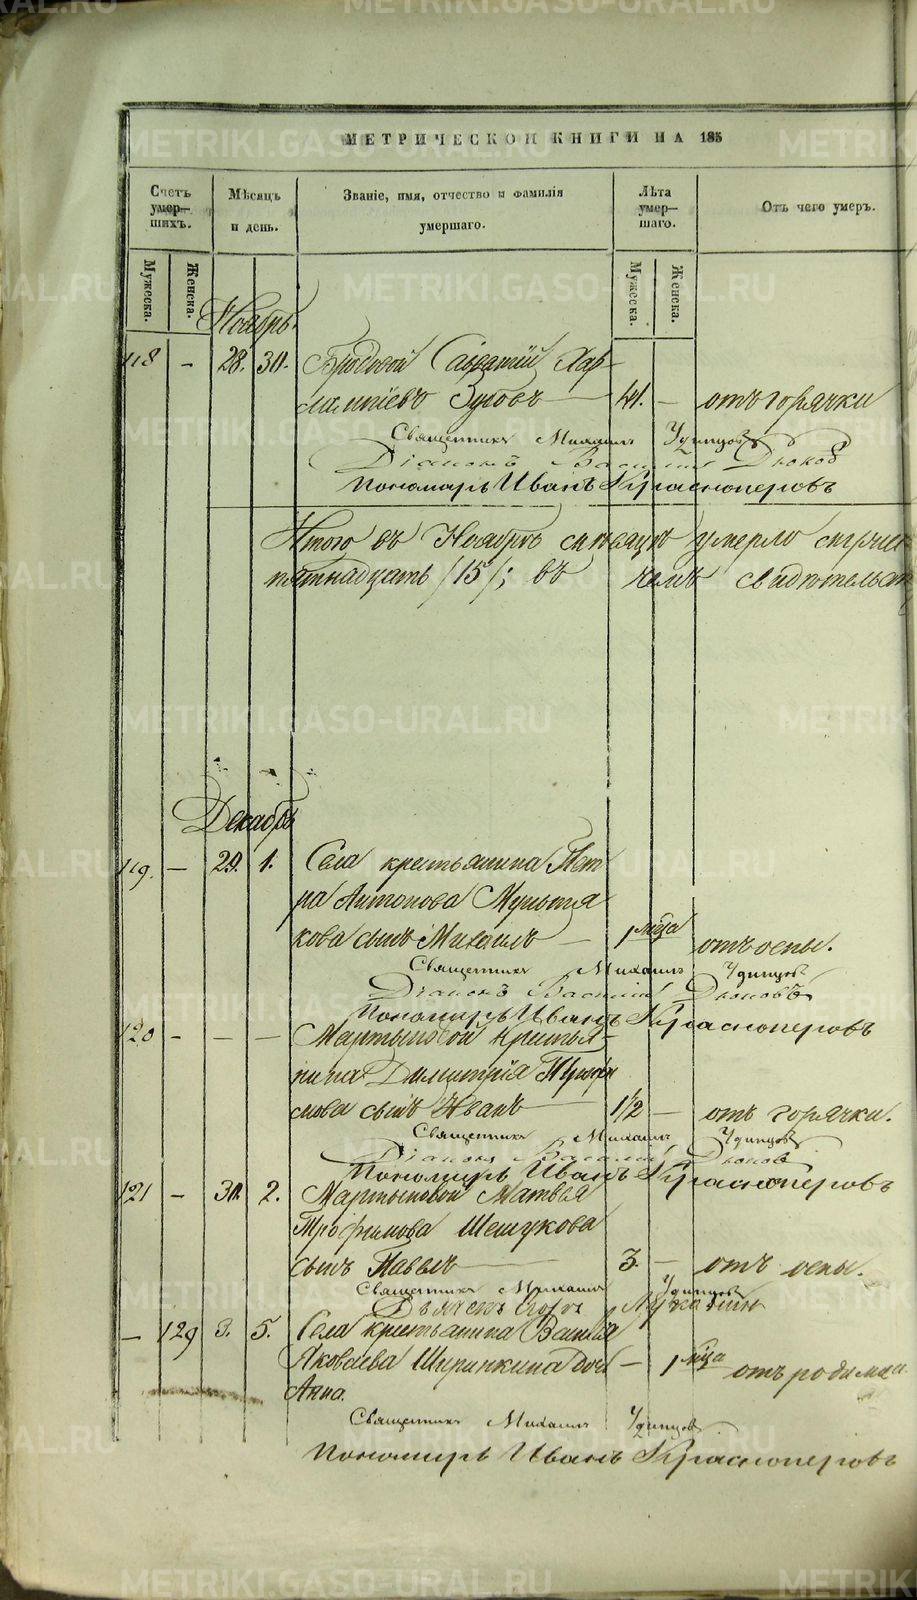 МЕТРИЧЕСКОЙ КНИГИ НА 185
Счетъ умер—шихъ.
Мѣсяцъ и день.
Званіе, имя, отчество и фамилія умершаго.
Лѣта умер—шаго.
Отъ чего умеръ.
Мужеска. Женска.
Мужеска. Женска.
Ноябрь.
118 - 28. 30. Бродовой Хар-
лампіевъ Зуговъ 41. — отъ горячки
Священникъ Михаилъ Удинцовъ
Діаконъ Василій Дюковъ
Пономарь Иванъ Красноперовъ
Итого въ Ноябрѣ мѣсяцѣ умерло
пятнадцать /15/; въ чемъ свидѣтельст
Декабрь
119. — 29. 1. Села крестьянина Пет
ра Антонова Мультя
кова сынъ Михаилъ — 1 мѣца отъ оспы.
Священникъ Михаилъ Удинцовъ
Діаконъ Василій Дюковъ
Пономарь Иванъ Красноперовъ
120 - — — Мартыновой крестья-
нина Димитрія
сынъ Иванъ 1/2 — отъ горячки.
Священникъ Михаилъ Удинцовъ
Діаконъ Василій Дюковъ
Пономарь Иванъ Красноперовъ
121 - 30. 2. Мартыновой Матвѣя
Трофимова Шешукова
сынъ Павелъ 3. — отъ оспы.
Священникъ Михаилъ Удинцовъ
— 129 3. 5. Села крестьянина Василія
Яковлева Ширинкина дочь — 1 мѣца отъ родимца
Анна.
Священникъ Михаилъ Удинцовъ
Пономарь Иванъ Красноперовъ
METRIKI.GASO-URAL.RU